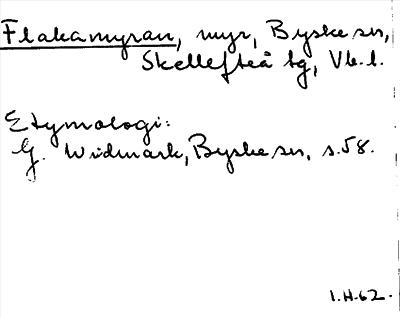 Flakamyran, myr, Byske sn,
Skellefteå tg, Vb. l.
Etymologi:
G. Widmark, Byske sn, s. 58.
I.H.62.